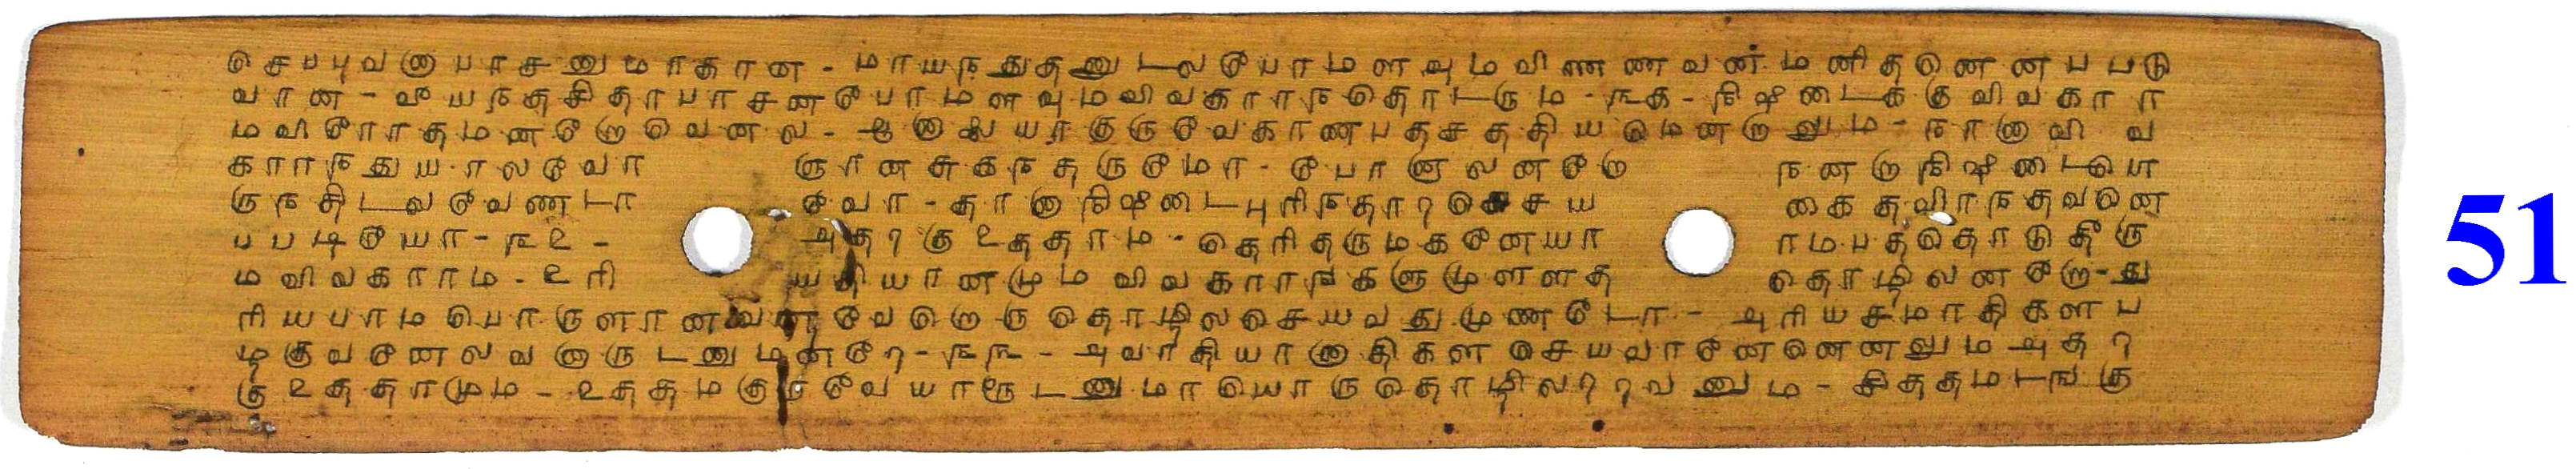 செபபுவனுபாசனுமாதான - மாயநதுதனுடலபோமளவுமவிணணவன மனிதனெனபபடு
வான - வீயநதசிதாபாசனபோமளவுமவிவகாரநதொடரும - ௩௧ - நிஷடைககுவிவகார
மவிரோதமனறோவெனல - ஆனுலயாகுருவேகாணபதசததியமெனறாலும - நானாவிவ
காரநதுயாலவோ ஞானசுகநதருமோ - போனாலனறோ நனறுநிஷடையெ
ருநதிடலவேணடா வோ - தானாநிஷடைபுரிநதாரசெய கைதவிரநதவனெ
பபடியோ - ௩௨ - அதரகு உததரம - தெரிதருமகனேயா ரமபததொடுதீரு
மவிவகாரம - உரி யதியானமுமவிவகாரஙகளுமுளளத தொழிலனறோ - து
ரியபரமபொருளானவனவேறொருதொழிலசெயவதுமுணடோ - அரியசமாதிகளப
ழகுவனேலவனாருடனுமனறே - ௩௩ - அவரதியானாதிகளசெயவானேனெனனுமஅதர
கு உததரமும - உததமகுருவேயாரூடனுமாயொருதொழிலரரவனும - சிததமடஙகு
51